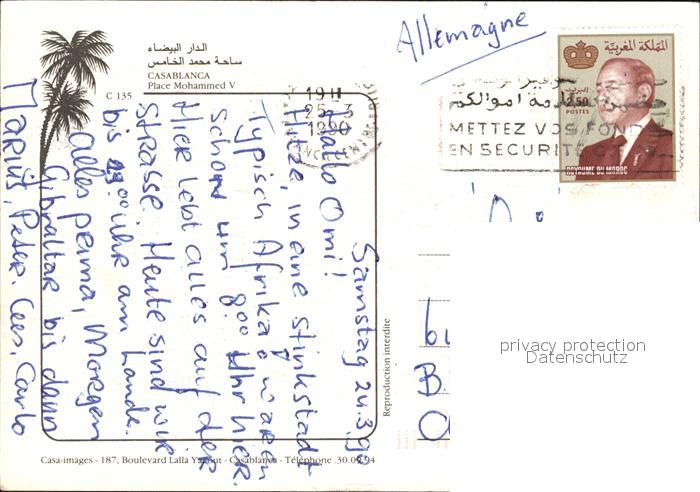 الدار البيضاء
ساحة محمد الخامس
CASABLANCA
Place Mohammed V
C 135
Allemagne
المملكة المغربية
2,50
POSTES
ROYAUME DU MAROC
METTEZ VOS FOND
EN SECURITE
19H
25-3
1990
Samstag 24.3.90
Hallo Omi!
Hitze, in eine stinkstadt
Typisch Afrika waren
schon um 8.00 Uhr hier.
Hier lebt alles auf der
Strasse. Heute sind wir
bis 23.00 Uhr am Lande.
Alles prima, Morgen
Gibraltar bis dann
Marius, Peter, Cees, Carlo
Reproduction interdite
privacy protection
Datenschutz
Casa-images - 187, Boulevard Lalla Yacout - Casablanca - Téléphone .30.09.94